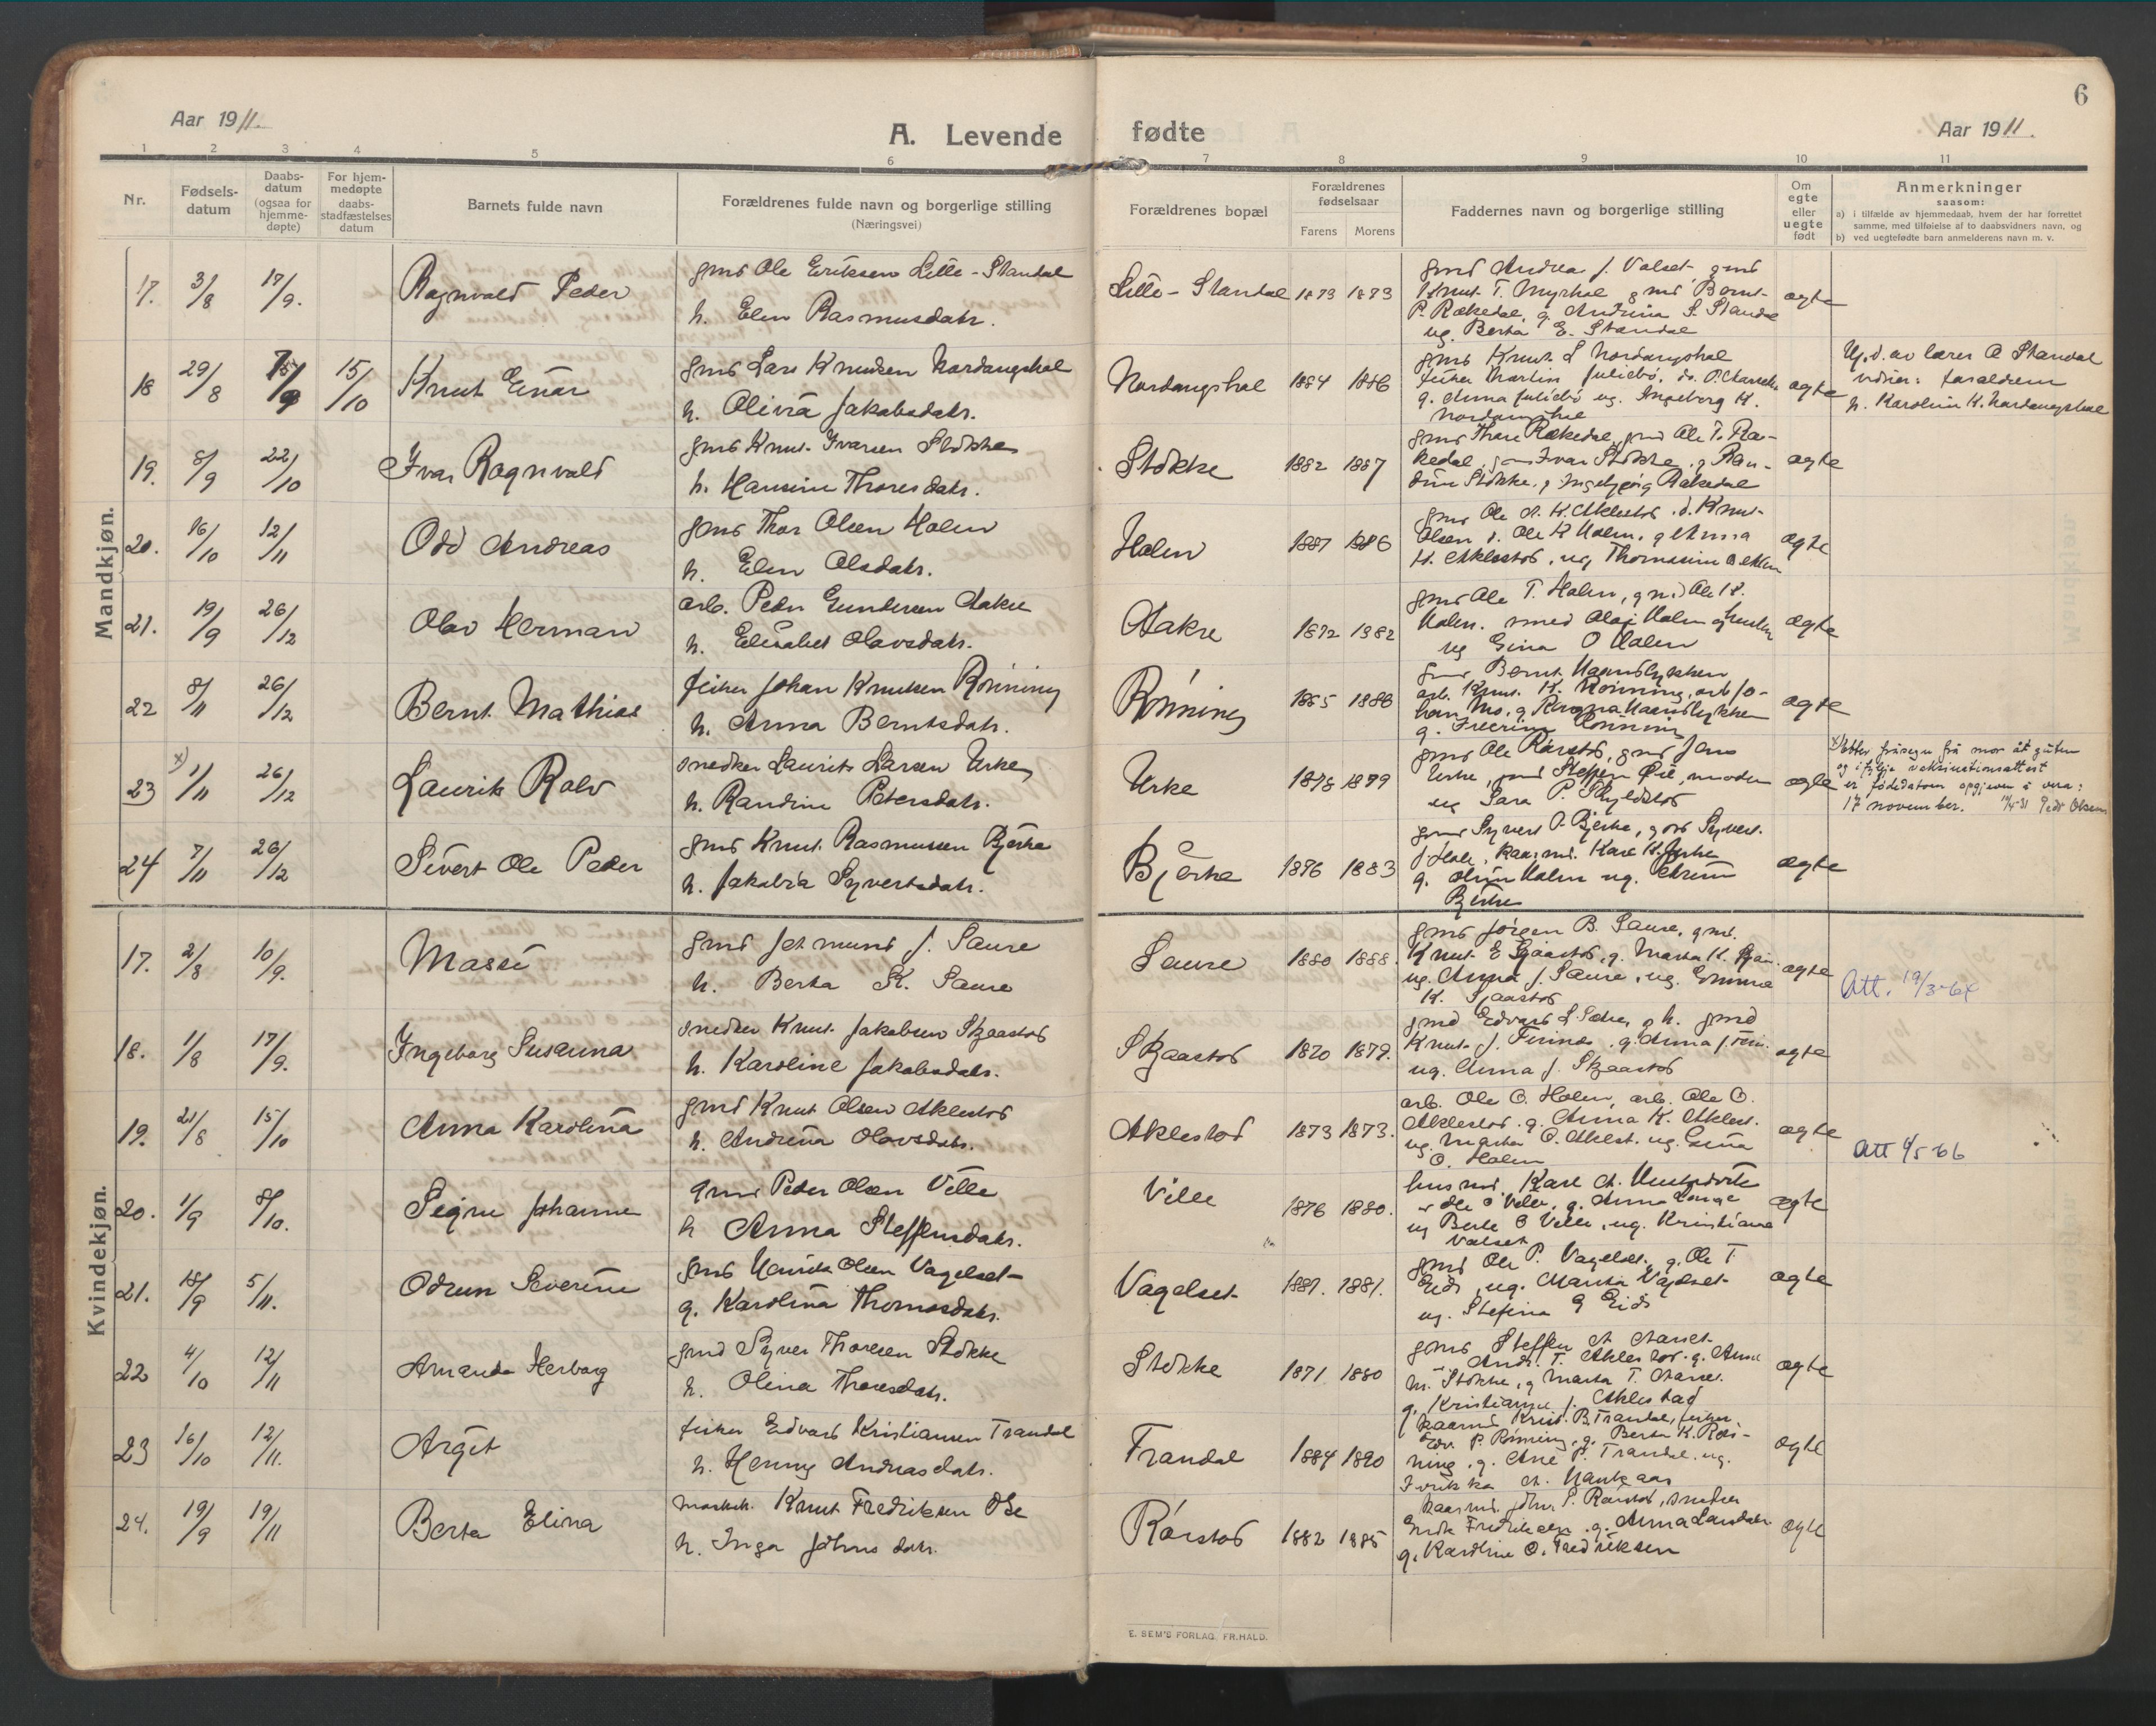 6
Aar 1911.
A. Levende fødte
Aar 1911.
1 2 3 4 5 6 7 8 9 10 11
Nr.
Fødsels-
datum
Daabs-
datum
(ogsaa for
hjemme-
døpte)
For hjem-
medøpte
daabs-
stadfæstelses
datum
Barnets fulde navn
Forældrenes fulde navn og borgerlige stilling
(Næringsvei)
Forældrenes bopæl
Forældrenes
fødselsaar
Farens Morens
Faddernes navn og borgerlige stilling
Om
egte
eller
uegte
født
Anmerkninger
saasom:
a) i tilfælde av hjemmedaab, hvem der har forrettet
samme, med tilføielse af to daabsvidners navn, og
b) ved uegtefødte barn anmelderens navn m. v.
Mandkjøn.
17. 3/8 17/9. Ragnvald Peder
gmd Ole Eriksen Lille-Standal
h. Elen Rasmusdatr.
Lille-Standal 1873 1873
gmd Andrea J. Valset gmd
Knut T. Myrhol gmd Bernt
P. Rækedal, g. Andrina S. Standal
ug. Berta E. Standal
ægte
18 29/8 15/10 Knut Einar
gmd Lars Knudsen Nordangshol
h. Olivia Jakobsdatr.
Nordangshol 1884 1886
gmd Knut L Nordangshol
fisker Martin
g. Anna ug. Ingeborg K.
Nordangshol
ægte
av lærer O Standal
vidner: foraldrene
h. Karolin K. Nordangshol
19. 8/9 22/10 Ivar Ragnvald
gmd Knut Ivarsen Stokke
h. Hansine Thoresdatr.
Stokke 1882 1887
gmd Thore Rækedal, gmd Ole T. Ræ-
kedal, Ivar Stokke, g Ran-
dine Stokke, g Ingebjørg Rækedal
ægte
20. 16/10 12/11 Odd Andreas
gmd Thor Olsen Holen
h. Elen Olsdatr.
Holen 1887 1886
gmd Ole A. K. Aklestod, d. Knut
Olsen d. Ole K Holen, g Anna
K. Aklestod, ug Thomasine
ægte
21. 19/9 26/12 Olav Herman
arb. Peder Gundersen Aakre
h. Elisabet Olavsdatr.
Aakre 1872 1882
gmd Ole T. Holen, gmd Ole K.
Holen. smed Olaf Holen
ug Gina O Holen
ægte
22 8/11 26/12 Bernt Mathias
fisker Johan Knutsen Rönning
h. Anna Berntsdatr.
Rönning 1885 1886
gmd Bernt Haandlykken
arb. Knut K. Rönning, arb Jo-
han Mo, g Ragna Haandlykken
g. Rönning
ægte
23 x) 1/11 26/12 Laurits Rolv
snedker Laurits Larsen Urke
h. Randine Petersdatr.
Urke 1878 1879
gmd Ole Rörstad, gmd Jens
Urke, gmd Steffen Øie, moder
ug Sara P. Skylstad
ægte
x) Etter frásegn frå mor åt guten
og ifylgje vaksinationsattest
er födsdatoen opgjeven å vera:
17 november. 19/5-31 Peder Olsen
24 7/11 26/12 Sivert Ole Peder
gmd Knut Rasmussen Bjerke
h. Jakobia Syvertsdatr.
Bjerke 1876 1883
gmd Syvert P. Bjerke, gmd Syvert
J Hole, kaarmd. Karl K. Urke
g. Holen ug.
Bjerke
ægte
Kvindekjøn.
17. 2/8 10/9. Massi
gmd Jetmund J. Saure
h. Berta K. Saure
Saure 1880 1888.
gmd Jörgen B. Saure, gmd.
Knut E Sjaastad, g. Marta K.
ug. Anna J. Saure, ug. Emma
K. Sjaastad
ægte
Att. 19/3-64
18. 1/8 17/9. Ingeborg Susanna
snedker Knut Jakobsen Skjaastad
h. Karoline Jakobsdatr.
Skjaastad 1870 1879.
gmd Edvard L Sæter, g h. gmd
Knut J. Finnes, g. Anna J.
ug. Anna J. Skjaastad
ægte
19. 21/8 15/10 Anna Karolina
gmd Knut Olsen Aklestod
h. Andrina Olavsdatr.
Aklestod 1873 1873.
arb. Ole O. Holen, arb. Ole O.
Aklestod. g. Anna K. Aklest.
ug. Marta O. Aklest. ug. Gina
O. Holen
ægte
Att 4/5-66
20. 1/9 8/10. Signe Johanne
gmd Peder Olsen Velle
h Anna Steffensdatr.
Ville 1876 1880.
husmd. Karl A.
Ole O Velle, g. Anna Lange
ug Berte O Velle, ug. Kristiana
Valset
ægte
21. 18/9 5/11. Odrun Severine
gmd Henrik Olsen Vagelset
g. Karolina Thomasdatr.
Vagelset 1881. 1881.
gmd Ole P. Vagelset, g. Ole T
Eid, ug. Marta Vagelset
ug. Stefina G Eid
ægte
22 4/10 12/11 Amanda Herborg
gmd Syver Thoresen Stokke
h. Olina Thoresdatr.
Stokke 1871 1880
gmd Steffen A Aarset
Andr. T. Aklestad. g. Anne
M. Stokke, g Marta T. Aarset.
g. Kristianne J. Aklestad
ægte
23 16/10 12/11. Argit
fisker Edvard Kristiansen Trandal
h. Henny Andreasdatr.
Trandal 1884 1890
kaarmd Krist. B. Trandal, fisker
Edv. P. Rönning, g. Berta K. Rön-
ning, g. Ane P. Trandal, ug.
Fredrikka A.
ægte
24. 19/9 19/11 Berta Elina
maskin. Knut Fredriksen Øie
h. Inga Johns datr.
Rörstad 1882 1885
kaarmd. John P. Rörstad, snedker
Fredriksen, g. Anna
g. Karoline O. Fredriksen
ægte
E. SEM'S FORLAG, FR.HALD.